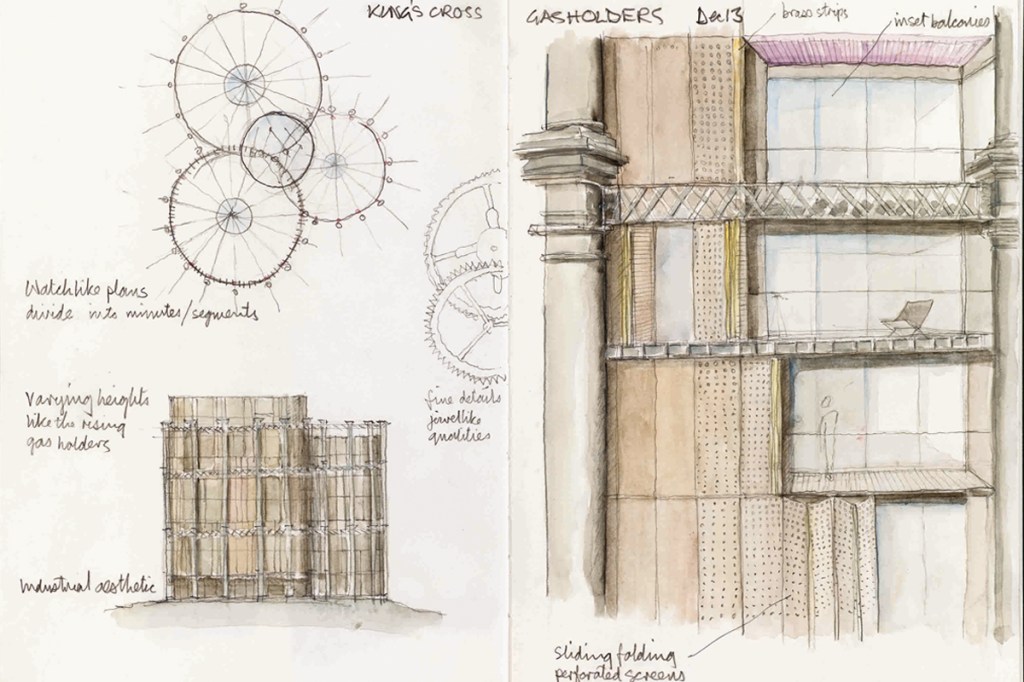 KING'S CROSS
GASHOLDERS Dec 13
brass strips
inset balconies
Watchlike plans
divide into minutes/segments
Varying heights
like the rising
gas holders
fine details
jewellike
qualities
Industrial aesthetic
sliding folding
perforated screens